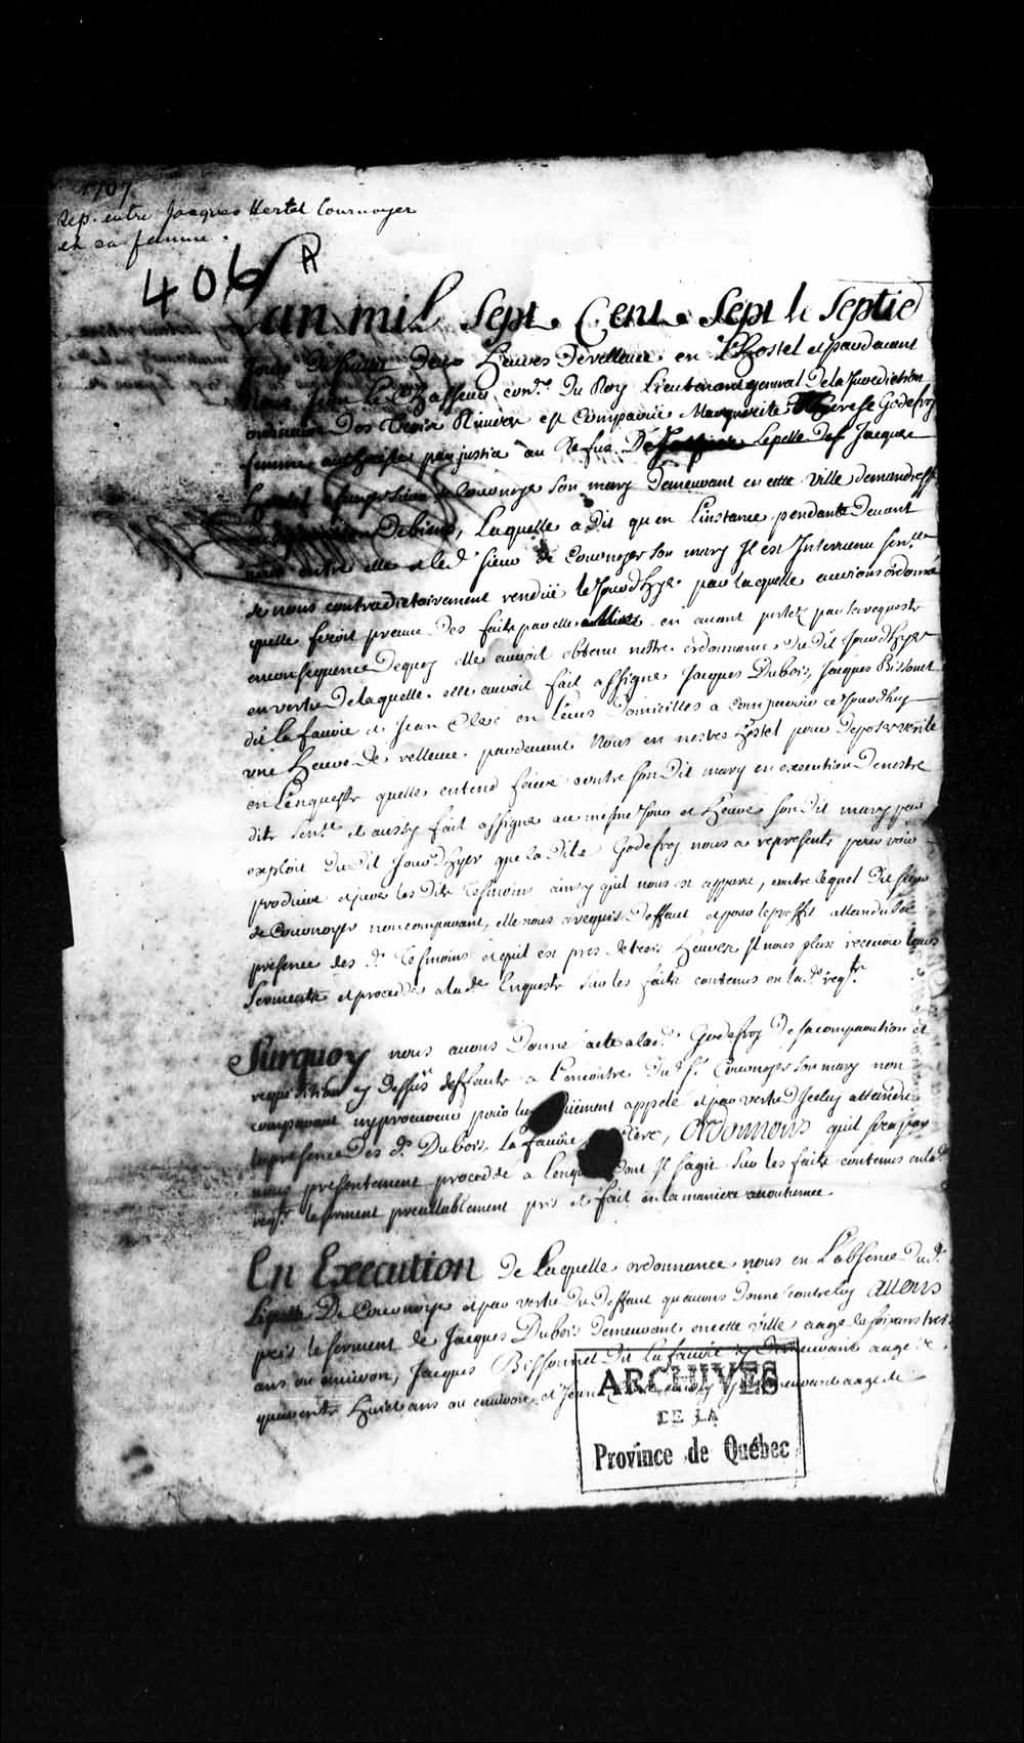 1707
Sep. entre Jacques Hertel Cournoyer
et sa femme.
406 A
Lan mil Sept Cent Sept le Septie
Jour de deux Heures de rellevee en L'hostel et pardevant
Jean Le Chasseur con.er du Roy Lieutenant general de la Jurediction
ordinaire des Trois Rivieres est Comparüe Marguerite Therese Godefroy
femme authorisée par justice au Refus de Lepelle de Jacques
Hertel Sieur de Cournoyer son mary demeurant en cette ville demandresse
De biens, Laquelle a dit qu en L'instance pendante devant
nous entre elle et led. sieur de Cournoyer son mary Il est Intervenu sen.ce
de nous contradictoirement rendüe le Jour d'hyer par laquelle aurions ordonné
quelle feroit preuve des faits par elle mis en avant portez par sa requeste
en consequence dequoy elle auroit obtenu nostre ordonnance du dit jour d'hyer
en vertu de laquelle elle auroit fait assigner Jacques Dubois, Jacques Bissonet
dit La favrie et Jean Clerc en Leurs domicilles a comparoir ce Jourdhuy
une Heure de rellevee pardevant Nous en nostre hostel pour deposer verité
en Lenqueste quelle entend faire contre son dit mary en execution de nostre
dite sen.ce et aussy fait assigner au mesme Jour et Heure son dit mary par
exploit du dit Jour d'hyer que la dite Godefroy nous a represente pour voir
produire et jurer les dits tesmoins ainsy quil nous est apparu, contre lequel dit sieur
de Cournoyer non comparant, elle nous a requis deffaut et pour le proffit attendu la
presence des d. tesmoins et quil est pres de trois Heures Il nous plust recevoir leurs
serments et proceder a lad.e Enqueste sur les faits contenus en lad.e req.te
Surquoy nous avons donné acte a lad. Godefroy de sa comparution et
requisition cy dessus deffaut a L'encontre dud. S. Cournoyer son mary non
comparant ny procureur pour luy düement appelé et par vertu d'Iceluy attendu
la presence des d. Dubois, La favrie Clerc, Ordonnons quil sera par
nous presentement procedé a L'enqu dont Il sagit sur les faits contenus en lad.
req.te le serment prealablement pris et fait en la maniere acoutumee.
En Execution de Laquelle ordonnance nous en L'absence dud.
Lepelle De Cournoyer et par vertu du deffaut qu avons donné contre luy Avons
pris le serment de Jacques Dubois demeurant en cette ville aagé de
ans ou environ, Jacques Bissonnet dit La favrie y demeurant aagé de
quarente Huict ans ou environ et Jean demeurant aagé de
ARCHIVES
DE LA
Province de Québec